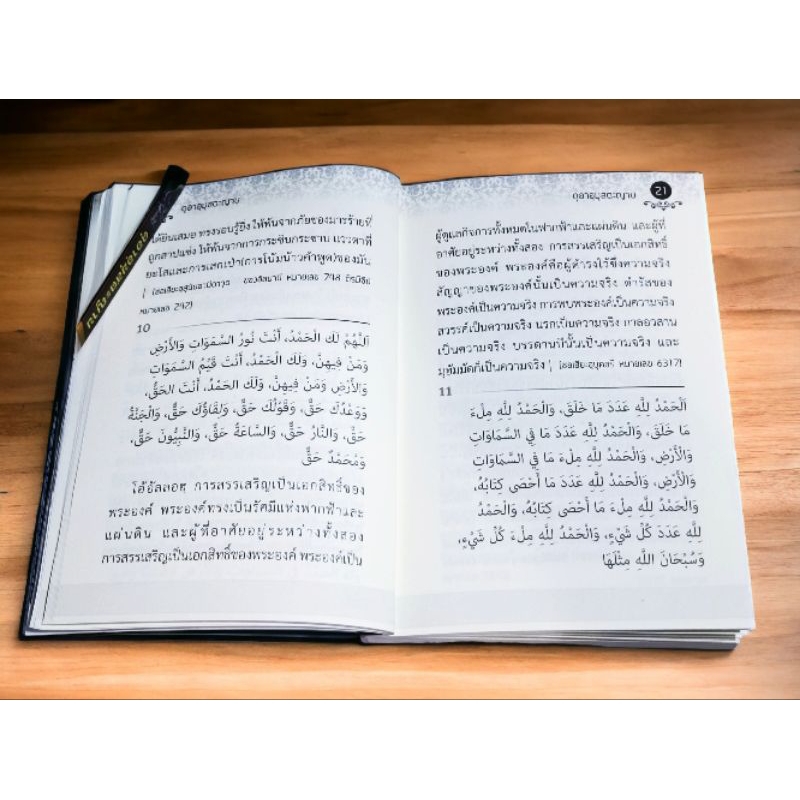 ดุอาอฺมุสตะญาบ
ได้ยินเสมอ ทรงรอบรู้ยิ่ง ให้พ้นจากภัยของมารร้ายที่
ถูกสาปแช่ง ให้พ้นจากการกระซิบกระซาบ แววตาที่
ยะโสและการเสกเป่า(การโน้มน้าวคำพูด)ของมัน
หมายเลข 242)
10
اَللَّهُمَّ لَكَ الْحَمْدُ، أَنْتَ نُورُ السَّمَوَاتِ وَالأَرْضِ
وَمَنْ فِيهِنَّ، وَلَكَ الْحَمْدُ، أَنْتَ قَيِّمُ السَّمَوَاتِ
وَالأَرْضِ وَمَنْ فِيهِنَّ، وَلَكَ الحَمْدُ، أَنْتَ الحَقُّ،
وَوَعْدُكَ حَقٌّ، وَقَوْلُكَ حَقٌّ، وَلِقَاؤُكَ حَقٌّ، وَالْجَنَّةُ
حَقٌّ، وَالنَّارُ حَقٌّ، وَالسَّاعَةُ حَقٌّ، وَالنَّبِيُّونَ حَقٌّ،
وَمُحَمَّدٌ حَقٌّ
โอ้อัลลอฮฺ การสรรเสริญเป็นเอกสิทธิ์ของ
พระองค์ พระองค์ทรงเป็นรัศมีแห่งฟากฟ้าและ
แผ่นดิน และผู้ที่อาศัยอยู่ระหว่างทั้งสอง
การสรรเสริญเป็นเอกสิทธิ์ของพระองค์ พระองค์เป็น
ดุอาอฺมุสตะญาบ 21
ผู้ดูแลกิจการทั้งหมดในฟากฟ้าและแผ่นดิน และผู้ที่
อาศัยอยู่ระหว่างทั้งสอง การสรรเสริญเป็นเอกสิทธิ์
ของพระองค์ พระองค์คือผู้ดำรงไว้ซึ่งความจริง
สัญญาของพระองค์นั้นเป็นความจริง ดำรัสของ
พระองค์เป็นความจริง การพบพระองค์เป็นความจริง
สวรรค์เป็นความจริง นรกเป็นความจริง กาลอวสาน
เป็นความจริง บรรดานบีนั้นเป็นความจริง และ
มุฮัมมัดก็เป็นความจริง (เศาะฮีหฺอัลบุคอรี หมายเลข 6317)
11
اَلْحَمْدُ لِلَّهِ عَدَدَ مَا خَلَقَ، وَالْحَمْدُ لِلَّهِ مِلْءَ
مَا خَلَقَ، وَالْحَمْدُ لِلَّهِ عَدَدَ مَا فِي السَّمَاوَاتِ
وَالْأَرْضِ، وَالْحَمْدُ لِلَّهِ مِلْءَ مَا فِي السَّمَاوَاتِ
وَالْأَرْضِ، وَالْحَمْدُ لِلَّهِ عَدَدَ مَا أَحْصَى كِتَابُهُ،
وَالْحَمْدُ لِلَّهِ مِلْءَ مَا أَحْصَى كِتَابُهُ، وَالْحَمْدُ
لِلَّهِ عَدَدَ كُلِّ شَيْءٍ، وَالْحَمْدُ لِلَّهِ مِلْءَ كُلِّ شَيْءٍ،
وَسُبْحَانَ اللَّهِ مِثْلَهَا